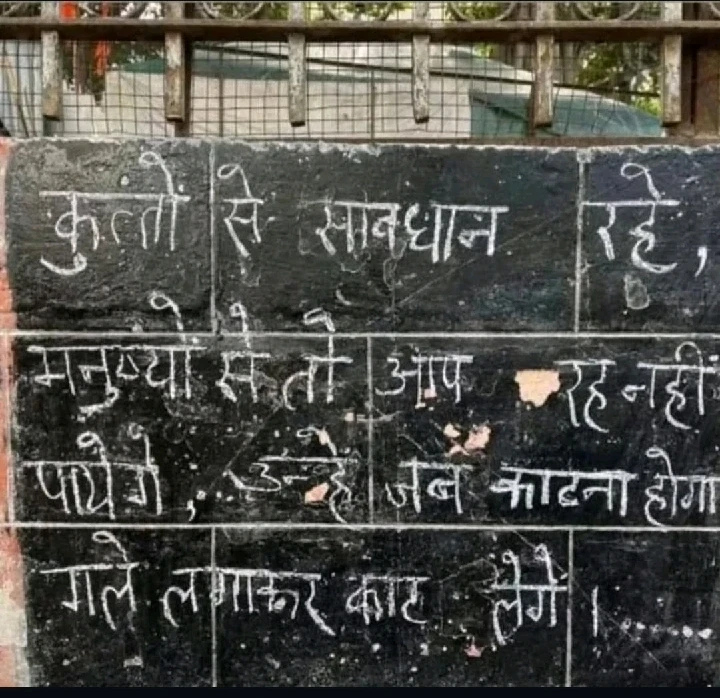 कुत्तों से सावधान रहे,
मनुष्यों से तो आप रह नहीं
पायेगे, उन्हे जब काटना होगा
गले लगाकर काट लेगे।......